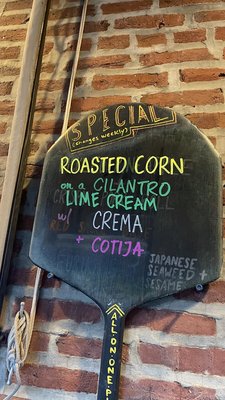 SPECIAL
(changes weekly)
ROASTED CORN
on a CILANTRO
LIME CREAM
w/ CREMA
+ COTIJA
JAPANESE
SEAWEED +
SESAME
ALL·ON·ONE·P